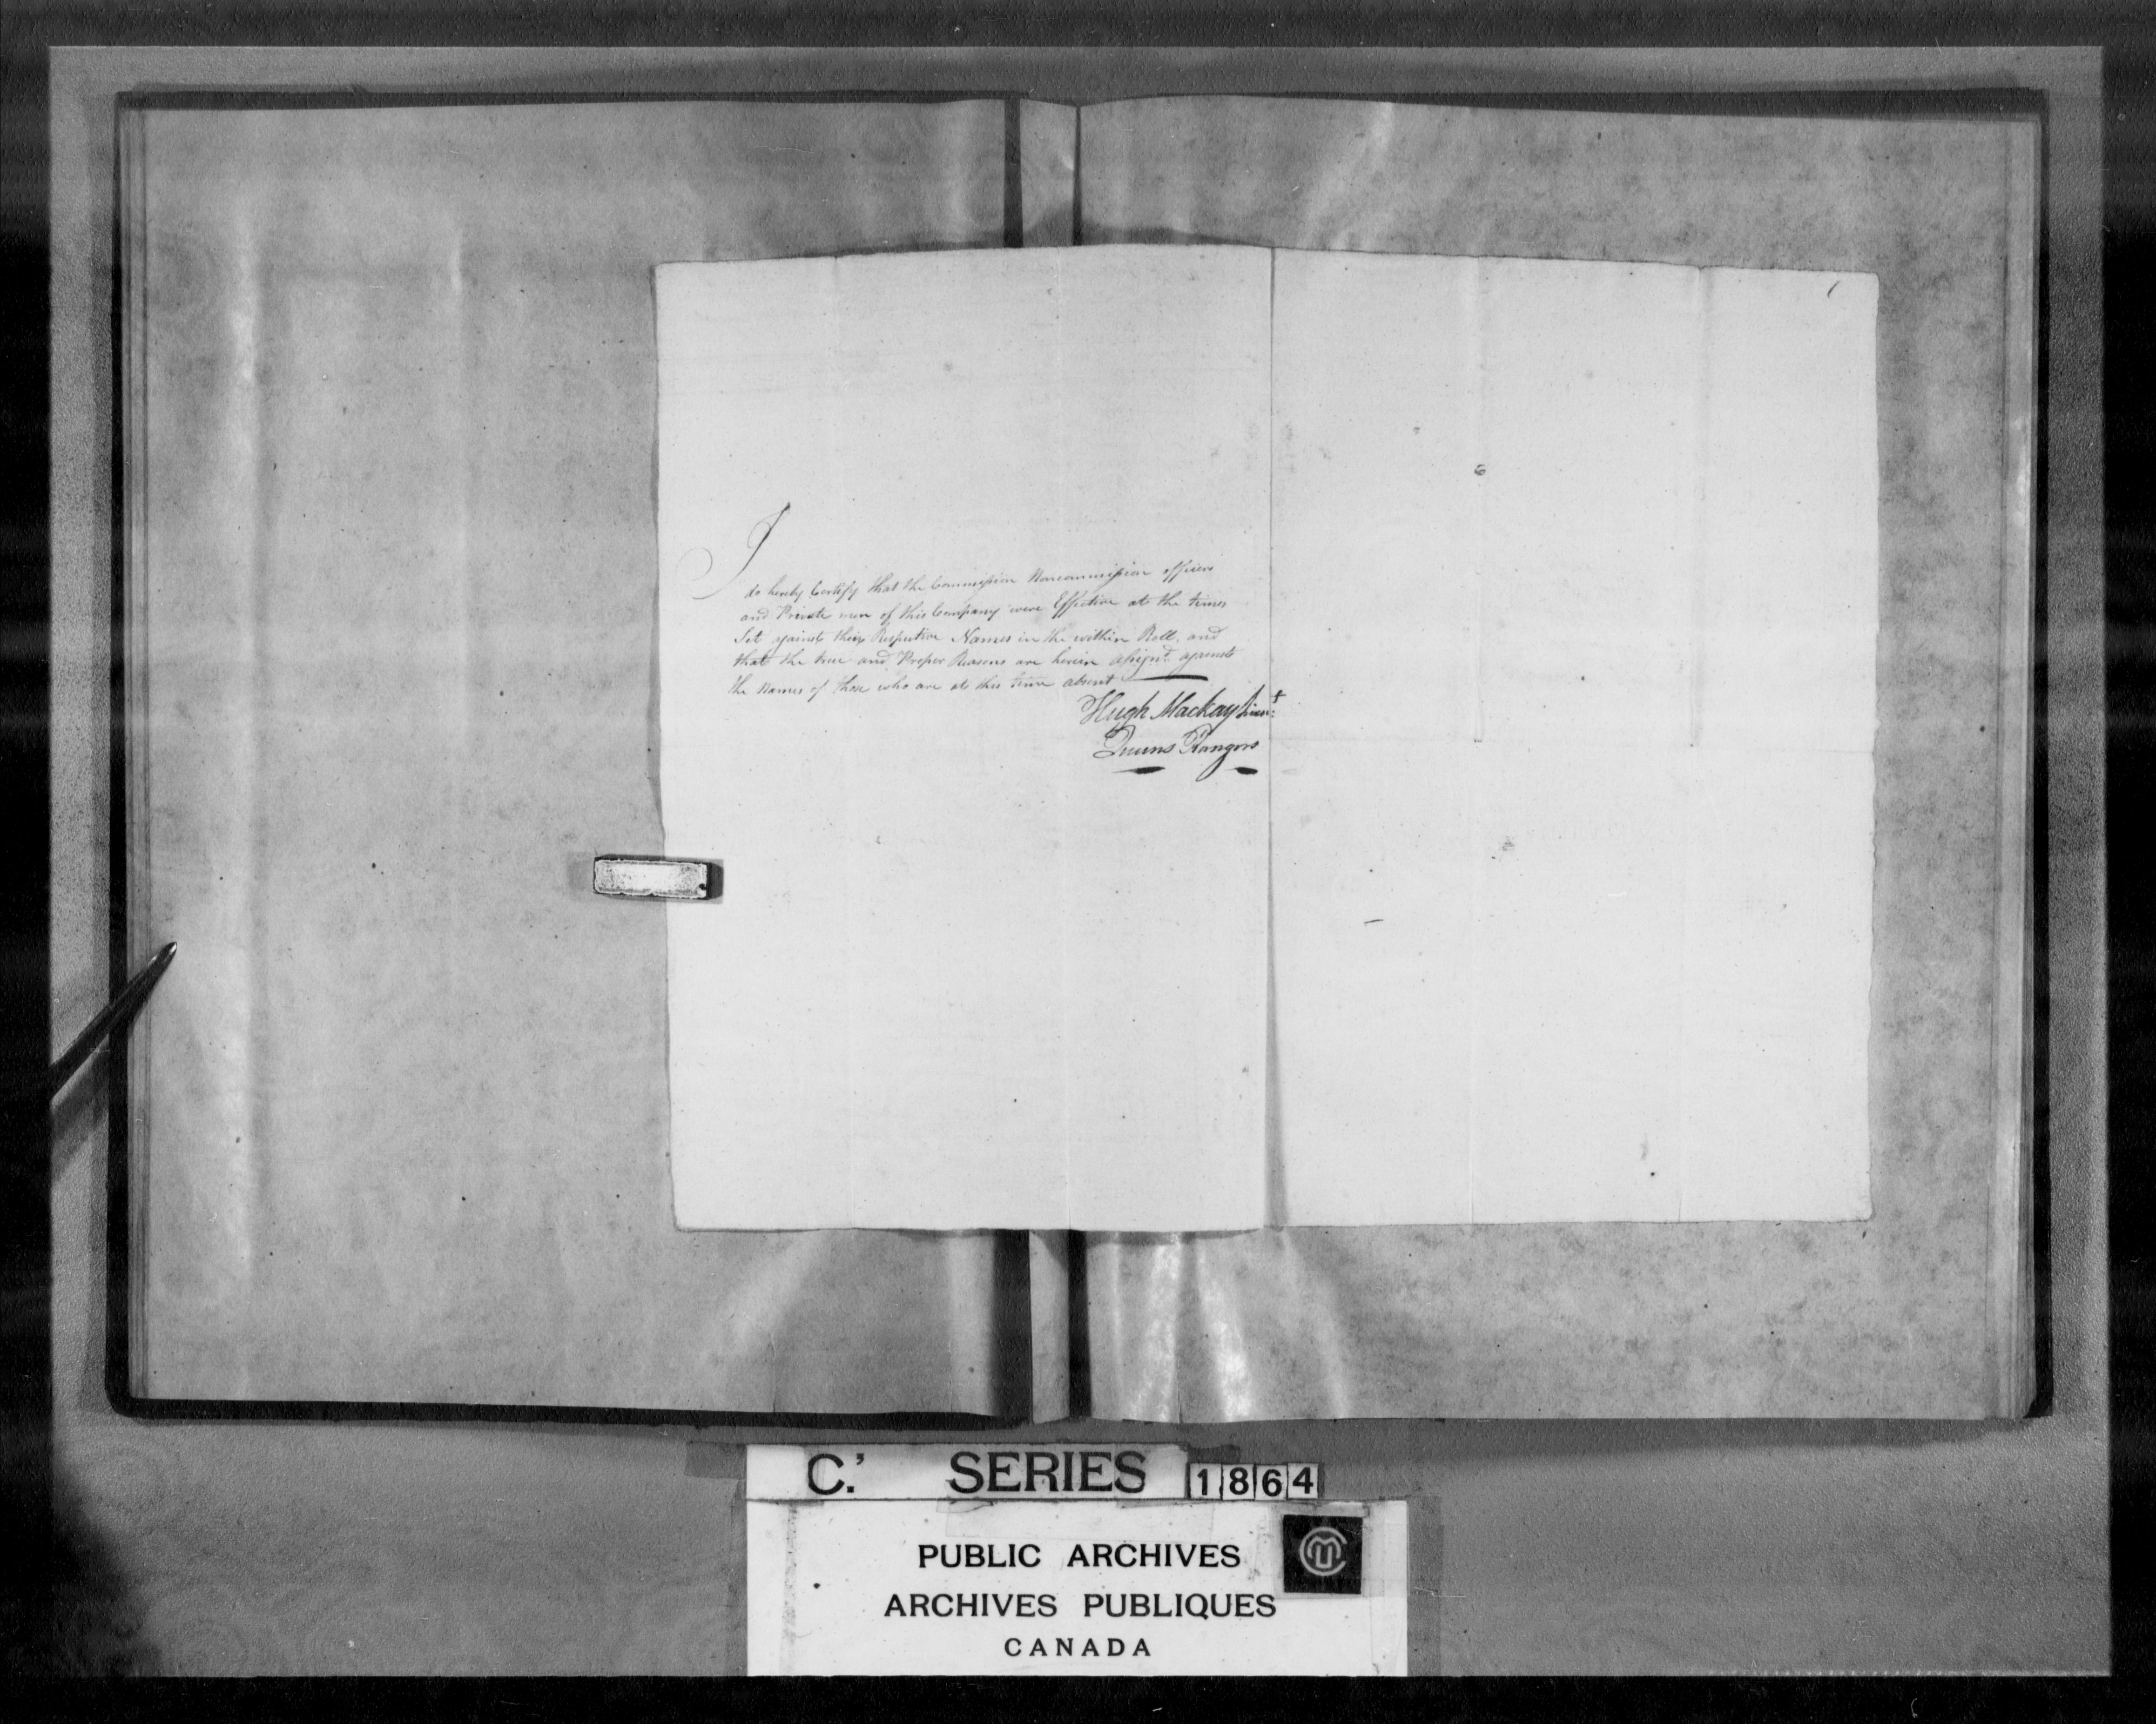 I
do hereby Certify that the Commission Noncommission officers
and Private men of this Company were Effective at the times
Set against their Respective Names in the within Roll, and
that the true and Proper Reasons are herein assign'd against
the Names of those who are at this time absent
Hugh Mackay Lieut
Queens Rangers
C.' SERIES 1864
PUBLIC ARCHIVES
ARCHIVES PUBLIQUES
CANADA